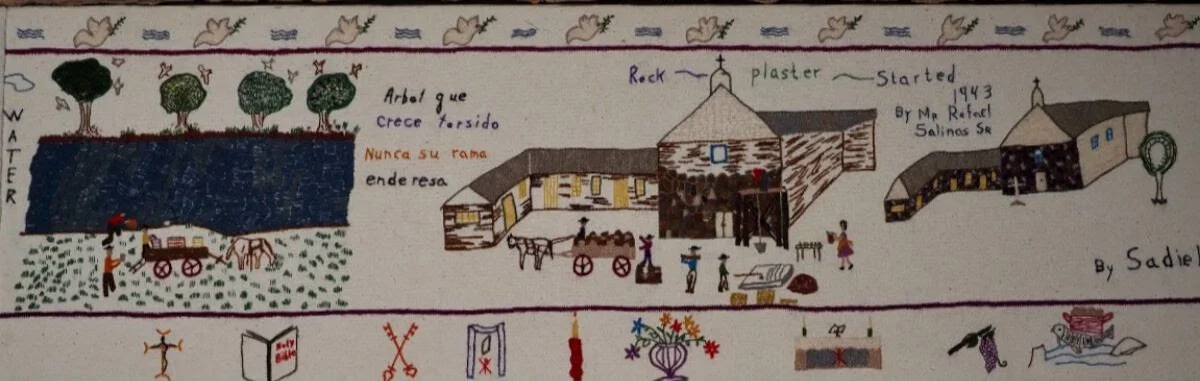 WATER
Arbol que
crece torsido
Nunca su rama
enderesa
Rock
plaster
Started
1943
By Mr Rafael
Salinas Sr
By Sadiel
Holy
Bible